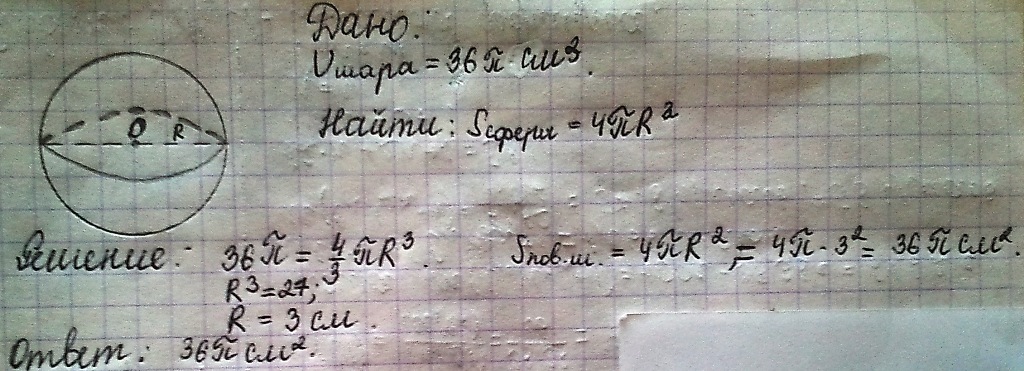 Дано:
Vшара = 36π см³.
O R
Найти: Sсферы = 4πR²
Решение: 36π = 4/3 πR³.
R³ = 27;
R = 3 см.
Sпов.ш. = 4πR², = 4π · 3² = 36π см².
Ответ: 36π см².